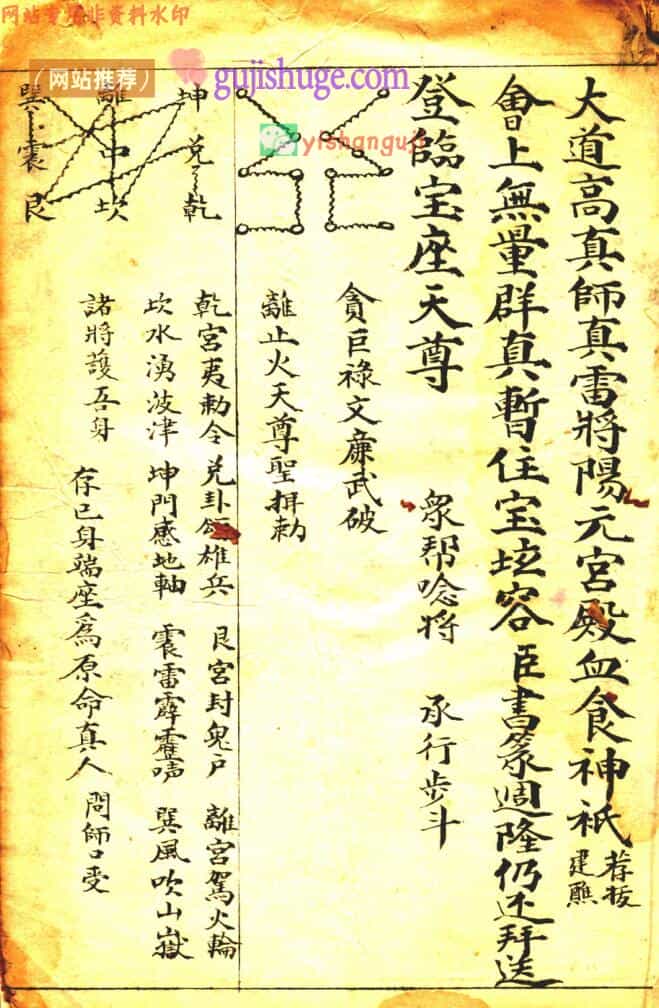 网站专用非资料水印
（网站推荐）
gujishuge.com
yishanguji
大道高真師真雷將陽元宮殿血食神祇
荐拔
建醮
會上無量群真暫住宝坛容臣書篆週隆仍还拜送
登臨宝座天尊
眾帮唸将 承行步斗
貪巨祿文廉武破
離止火天尊聖揖勅
坤 兌 乾
離 中 坎
巽 震 艮
乾宮夷勅令 兌卦領雄兵 艮宮封鬼户 離宮駕火輪
坎水湧波津 坤門感地軸 震雷霹靂吼 巽風吹山嶽
諸將護吾身 存己身端座爲原命真人 問師口受